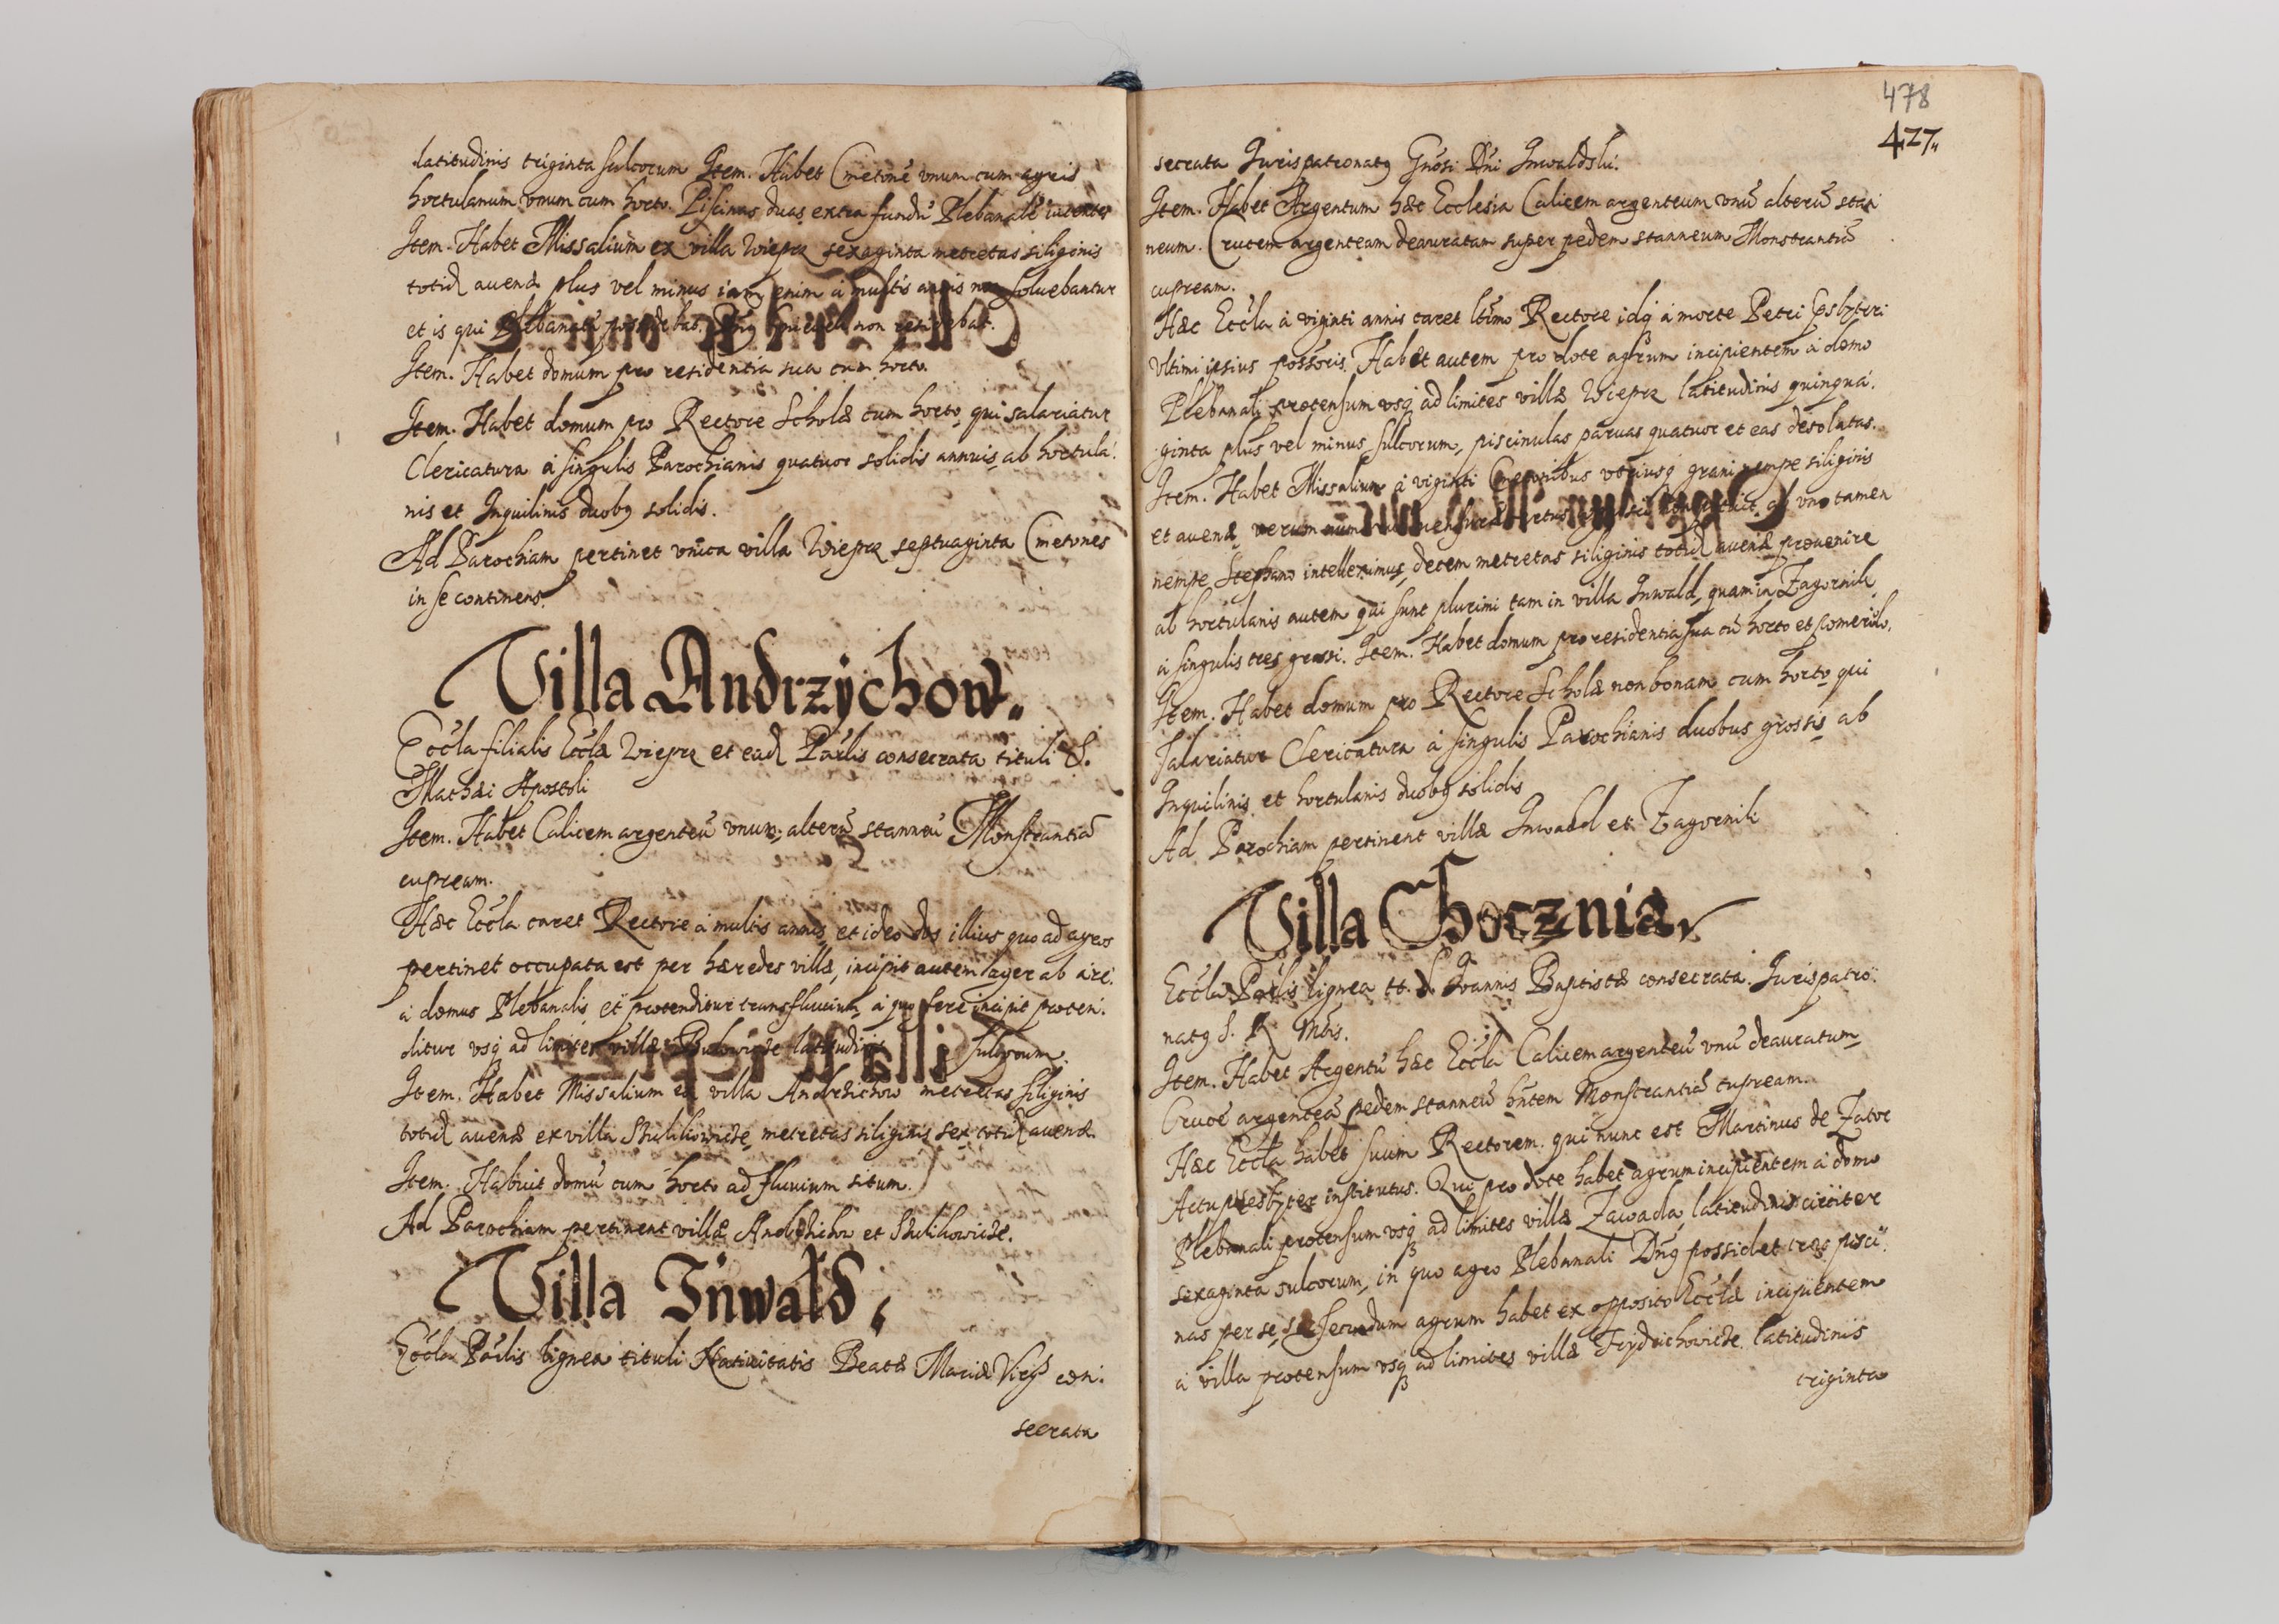 latitudinis triginta sulcorum Item. Habet Cmetonē vnum cum agris
hortulanum vnum cum horto. Piscinas duas extra fundū Plebanalē
Item. Habet Missalium ex villa Wieprz sexaginta metretas siliginis
totid auenæ plus vel minus iam enim à multis annis non soluebantur
et is qui Plebanatū possidebat, non residebat.
Item. Habet domum pro residentia sua cum horto.
Item. Habet domum pro Rectore Scholæ cum horto, qui salariatur
Clericatura à singulis Parochianis quatuor solidis annuis, ab hortula:
nis et Inquilinis duobꝰ solidis.
Ad Parochiam pertinet vnica villa Wieprz septuaginta Cmetones
in se continens.
Villa Andrzÿchow.
Eccla filialis Ecclæ Wieprz et ead Parlis consecrata tituli S.
Mathæi Apostoli
Item. Habet Calicem argenteū vnum, alterū stanneū Monstrantiā
cupream.
Hæc Eccla caret Rectore à multis annis, et ideo dos illius quo ad agros
pertinet occupata est per hæredes villæ, incipit autem ager ab are:
a domus Plebanalis et protenditur trans fluuium, à quo fere incipit proten:
ditur vsq ad limites villæ latitudinis sulcorum.
Item. Habet Missalium ex villa Andrzichow metretas siliginis
totid auenæ ex villa metretas siliginis sex totid auenæ.
Item. Habuit domū cum horto ad fluuium situm.
Ad Parochiam pertinent villæ Andrzichow et
Villa Inwald,
Eccla Parlis lignea tituli Natiuitatis Beatæ Mariæ Virgs con:
secrata
478
427.
secrata Jurispatronatꝰ Gnosi Dni Inwaldski.
Item. Habet Argentum hæc Ecclesia Calicem argenteum vnū alterū stan
neum. Crucem argenteam deauratam super pedem stanneum Monstrantiā
cupream.
Hæc Eccla à viginti annis caret ltimo Rectore idq à morte Petri Psbyteri
vltimi ipsius possoris. Habet autem pro dote agrum incipientem à domo
Plebanali protensum vsq ad limites villæ Wieprz latitudinis quinqua:
ginta plus vel minus sulcorum, piscinulas paruas quatuor et eas desolatas.
Item. Habet Missalium à viginti Cmetonibus vtriusq grani nempe siliginis
et auenæ, verum ab vno tamen
nempe Stephano intelleximus, decem metretas siliginis totid auenæ prouenire
ab hortulanis autem qui sunt plurimi tam in villa Inwald, quam in Zagornik
à singulis tres grossi. Item. Habet domum pro residentia sua cū horto et pomerio,
Item. Habet domum pro Rectore Scholæ non bonam cum horto qui
salariatur Clericatura à singulis Parochianis duobus grossis ab
Inquilinis et hortulanis duobꝰ solidis
Ad Parochiam pertinent villæ Inwald et Zagornik
Villa Chocznia,
Eccla Parlis lignea tt. S. Joannis Baptistæ consecrata. Jurispatro:
natꝰ S. R. Mtis.
Item. Habet Argentū hæc Eccla Calicem argenteū vnū deauratum,
Crucē argenteā pedem stanneū hntem Monstrantiā cupream.
Hæc Eccla habet suum Rectorem, qui nunc est Martinus de Zator
Actu presbyter institutus. Qui pro dote habet agrum incipientem à domo
Plebanali protensum vsq ad limites villæ Zawada, latitudinis circiter
sexaginta sulcorum, in quo agro Plebanali Dnꝰ possidet tres pisci:
nas per se, secundum agrum habet ex opposito Ecclæ incipientem
à villa protensum vsq ad limites villæ Frydrichowicze latitudinis
triginta